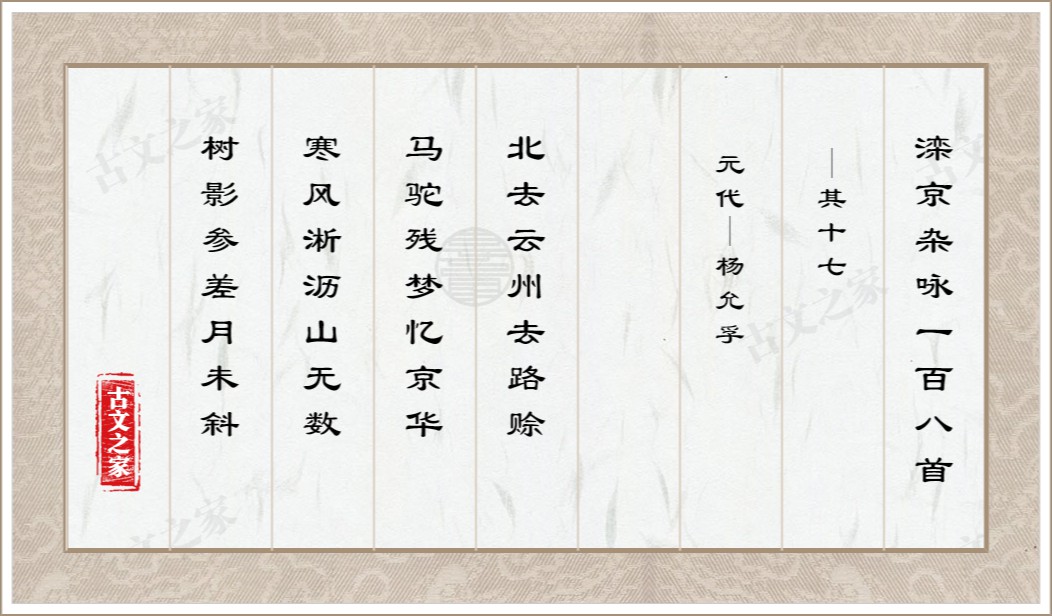 滦京杂咏一百八首
—其十七
元代—杨允孚
北去云州去路赊
马驼残梦忆京华
寒风淅沥山无数
树影参差月未斜
古文之家
古文之家
古文之家
古文之家